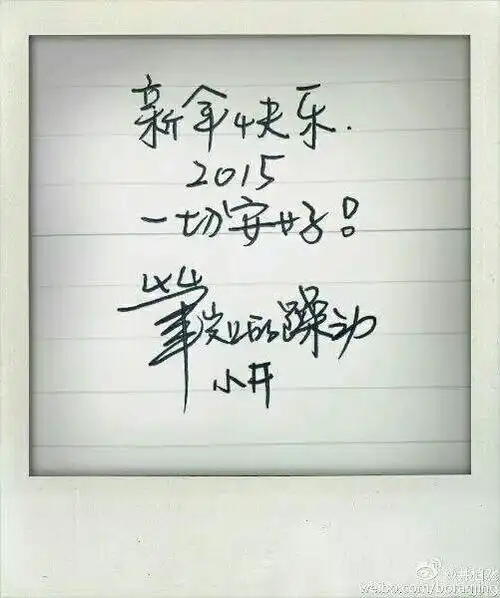 新年快乐.
2015
一切安好!
上的躁动
小开
weibo.com/